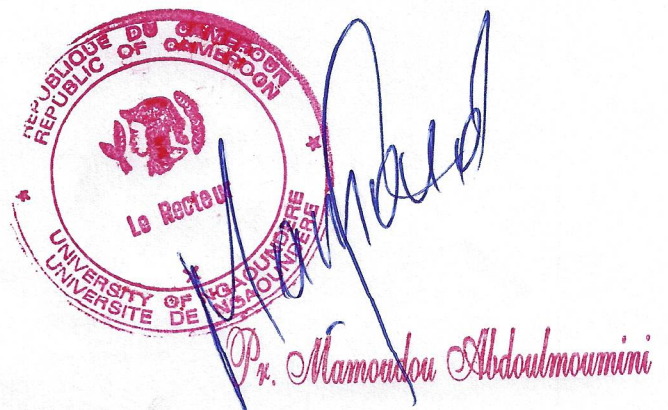 REPUBLIQUE DU CAMEROUN
REPUBLIC OF CAMEROON
Le Recteur
UNIVERSITY OF NGAOUNDERE
UNIVERSITE DE NGAOUNDERE
Pr. Mamoudou Abdoulmoumini